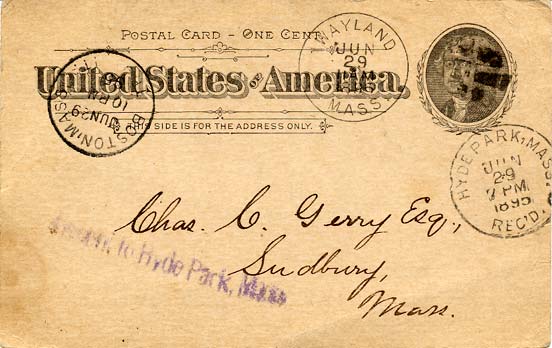 POSTAL CARD - ONE CENT.
United States of America.
THIS SIDE IS FOR THE ADDRESS ONLY.
WAYLAND
JUN
29
1895
MASS.
BOSTON, MASS.
JUN 29
HYDE PARK, MASS.
JUN
29
7 PM
1895
REC'D.
Chas. C. Gerry Esq.,
Sudbury,
Mass.
to Hyde Park, Mass